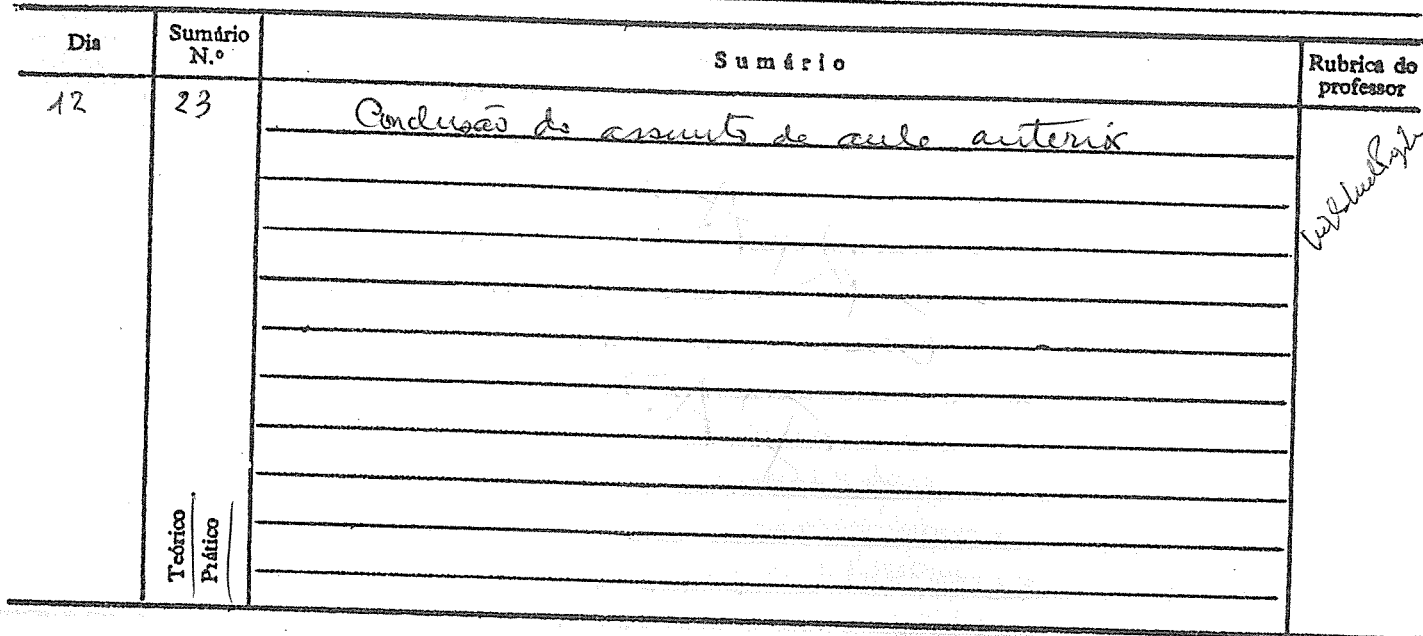 Dia
Sumário N.º
Sumário
Rubrica do professor
12
23
Conclusão do assunto da aula anterior
Teórico
Prático